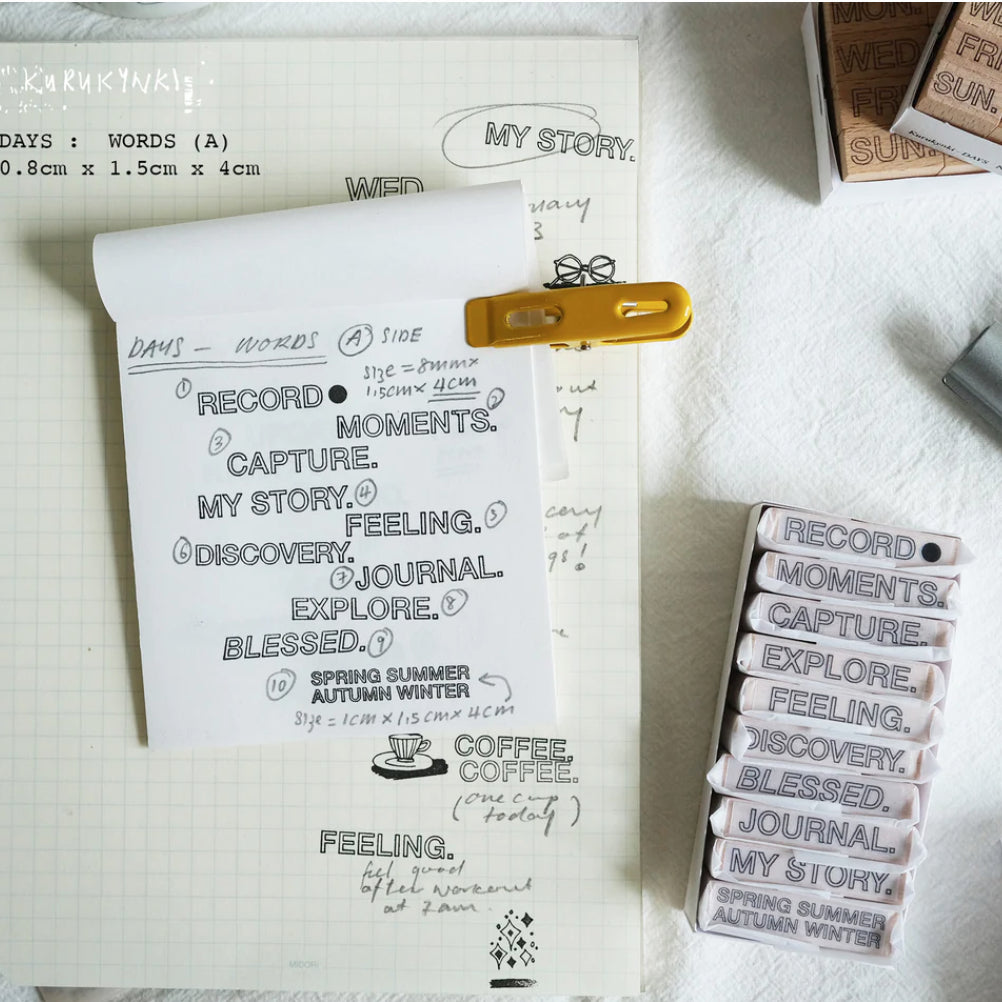 KURUKYNKI
DAYS :  WORDS (A)
0.8cm x 1.5cm x 4cm
MY STORY.
WED
3
DAYS - WORDS (A) SIDE
SIZE = 8mm x
1.5cm x 4cm
① RECORD●
MOMENTS. ②
③ CAPTURE.
MY STORY. ④
FEELING. ⑤
⑥ DISCOVERY.
⑦ JOURNAL.
EXPLORE. ⑧
BLESSED. ⑨
⑩ SPRING SUMMER
AUTUMN WINTER
SIZE = 1cm x 1.5cm x 4cm
COFFEE.
COFFEE.
(one cup
today)
FEELING.
feel good
after workout
at 7am.
MIDORI
MON.
WED
FRI
SUN.
FRI
SUN.
Kurukynki - DAYS
RECORD●
MOMENTS.
CAPTURE.
EXPLORE.
FEELING.
DISCOVERY.
BLESSED.
JOURNAL.
MY STORY.
SPRING SUMMER
AUTUMN WINTER